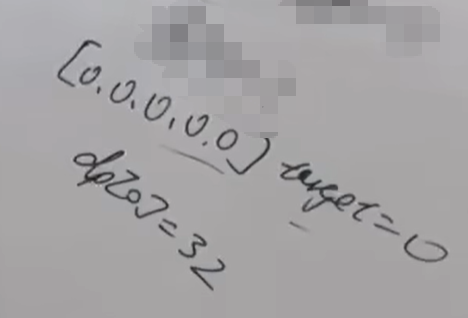 [0.0.0.0.0] target=0
dp[0]=32